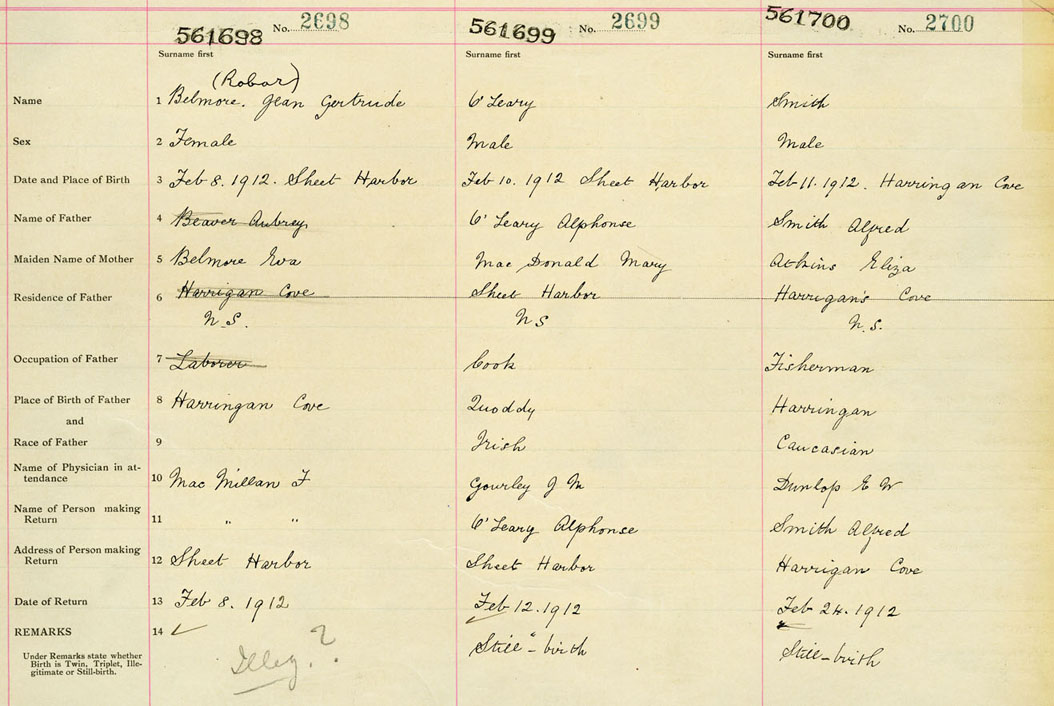 561698 No. 2698 561699 No. 2699 561700 No. 2700
Surname first Surname first Surname first
(Robar)
Name 1 Belmore. Jean Gertrude O'Leary Smith
Sex 2 Female Male Male
Date and Place of Birth 3 Feb 8. 1912. Sheet Harbor Feb 10. 1912 Sheet Harbor Feb 11. 1912. Harringan Cove
Name of Father 4 Beaver Aubrey O'Leary Alphonse Smith Alfred
Maiden Name of Mother 5 Belmore Eva Mac Donald Mary Atkins Eliza
Residence of Father 6 Harrigan Cove Sheet Harbor Harrigan's Cove
N.S. N S N.S.
Occupation of Father 7 Laborer Cook Fisherman
Place of Birth of Father 8 Harringan Cove Quoddy Harringan
and
Race of Father 9 Irish Caucasian
Name of Physician in at-
tendance 10 Mac Millan F Gourley J M Dunlop E W
Name of Person making
Return 11 " " O'Leary Alphonse Smith Alfred
Address of Person making
Return 12 Sheet Harbor Sheet Harbor Harrigan Cove
Date of Return 13 Feb 8. 1912 Feb 12. 1912 Feb 24. 1912
REMARKS 14 ✓ Still-birth Still-birth
Under Remarks state whether
Birth is Twin, Triplet, Ille-
gitimate or Still-birth.
Illeg. ?